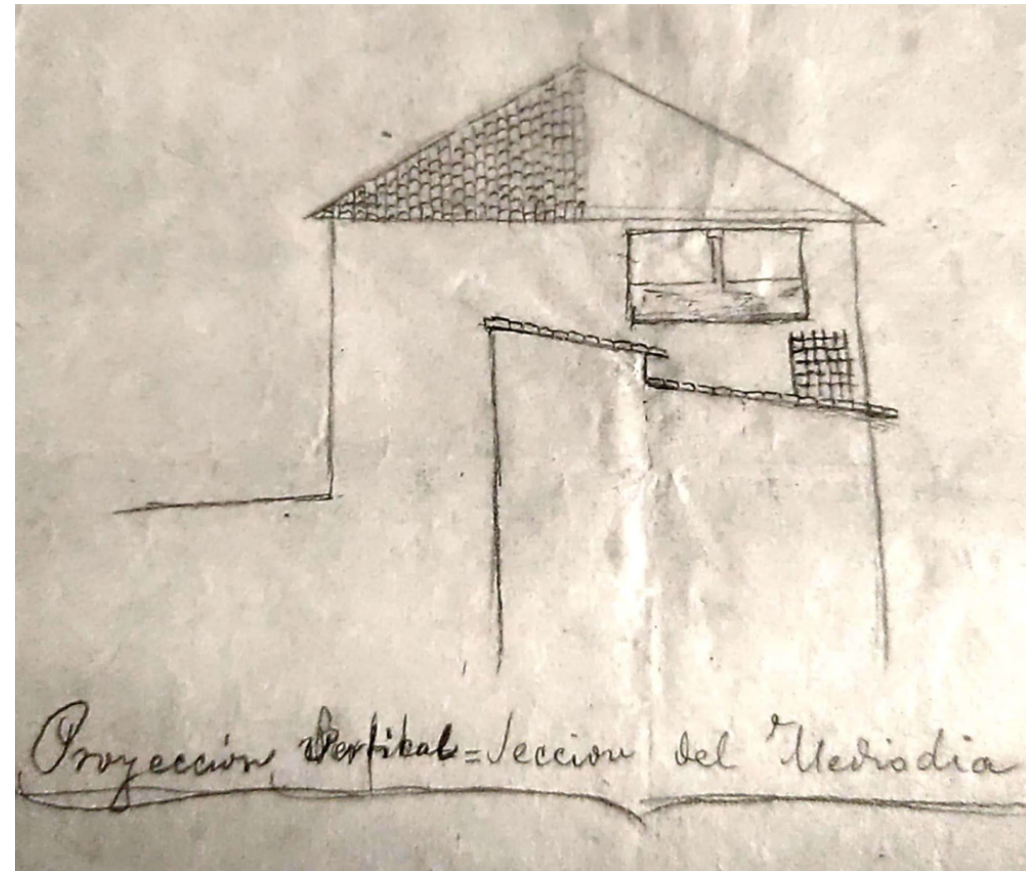 Proyección Vertikal=Seccion del Mediodia